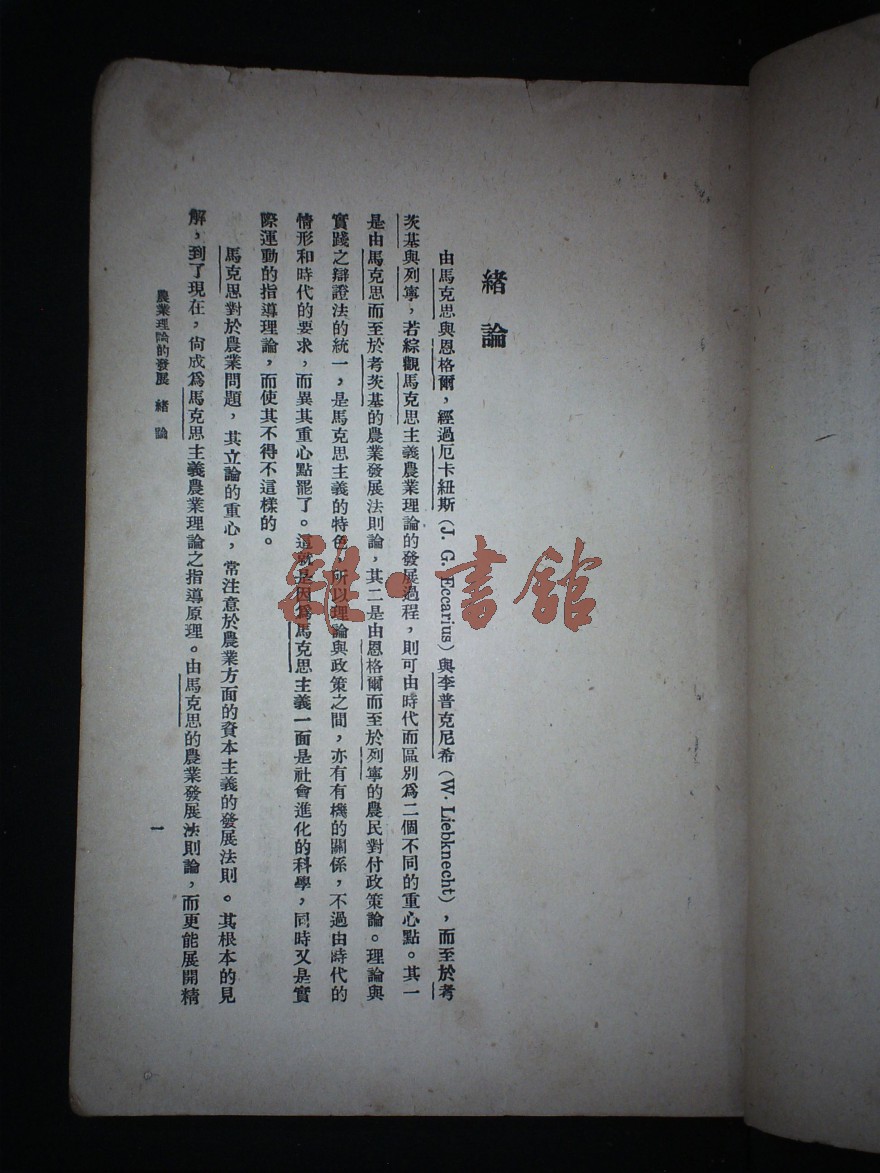 緒論
由馬克思與恩格爾，經過厄卡紐斯(J. G. Eccarius)與李普克尼希(W. Liebknecht)，而至於考
茨基與列寧，若綜觀馬克思主義農業理論的發展過程，則可由時代而區別爲二個不同的重心點。其一
是由馬克思而至於考茨基的農業發展法則論，其二是由恩格爾而至於列寧的農民對付政策論。理論與
實踐之辯證法的統一，是馬克思主義的特色，所以理論與政策之間，亦有有機的關係，不過由時代的
情形和時代的要求，而異其重心點罷了。這就是因爲馬克思主義一面是社會進化的科學，同時又是實
際運動的指導理論，而使其不得不這樣的。
馬克思對於農業問題，其立論的重心，常注意於農業方面的資本主義的發展法則。其根本的見
解，到了現在，尙成爲馬克思主義農業理論之指導原理。由馬克思的農業發展法則論，而更能展開精
農業理論的發展 緒論
一
雜·書館